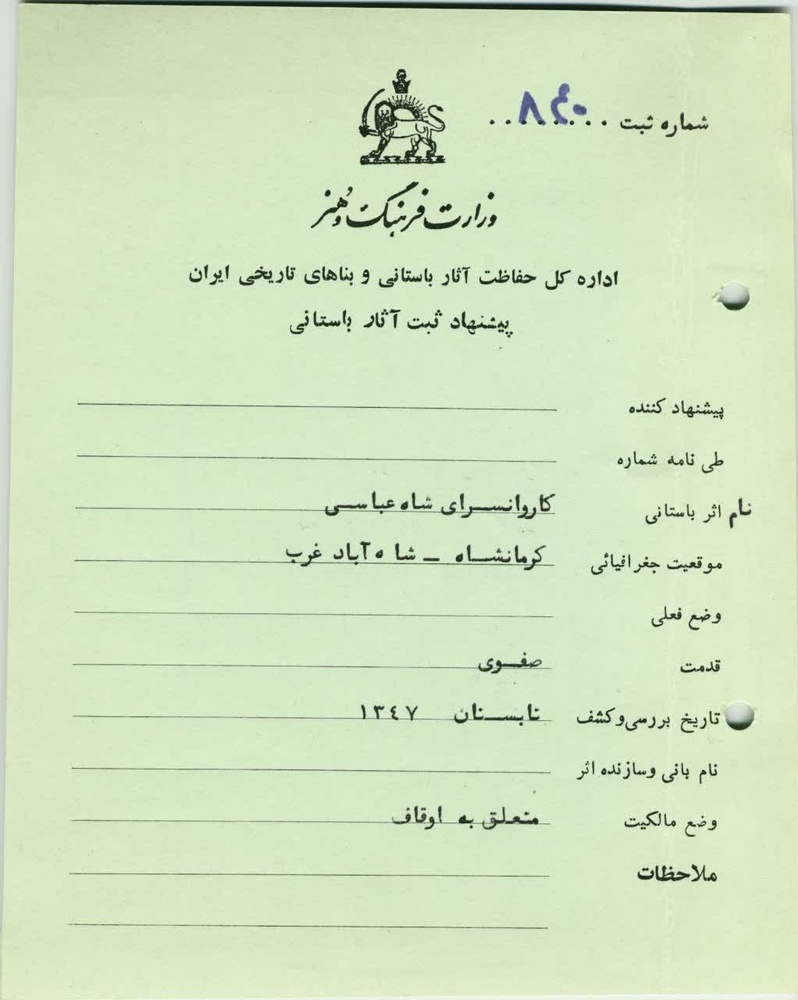 شماره ثبت ۸۴۰
وزارت فرهنگ و هنر
اداره کل حفاظت آثار باستانی و بناهای تاریخی ایران
پیشنهاد ثبت آثار باستانی
پیشنهاد کننده
طی نامه شماره
نام اثر باستانی کاروانسرای شاه عباسی
موقعیت جغرافیائی کرمانشاه ـ شاه آباد غرب
وضع فعلی
قدمت صفوی
تاریخ بررسی و کشف تابستان ۱۳٤۷
نام بانی وسازنده اثر
وضع مالکیت متعلق به اوقاف
ملاحظات